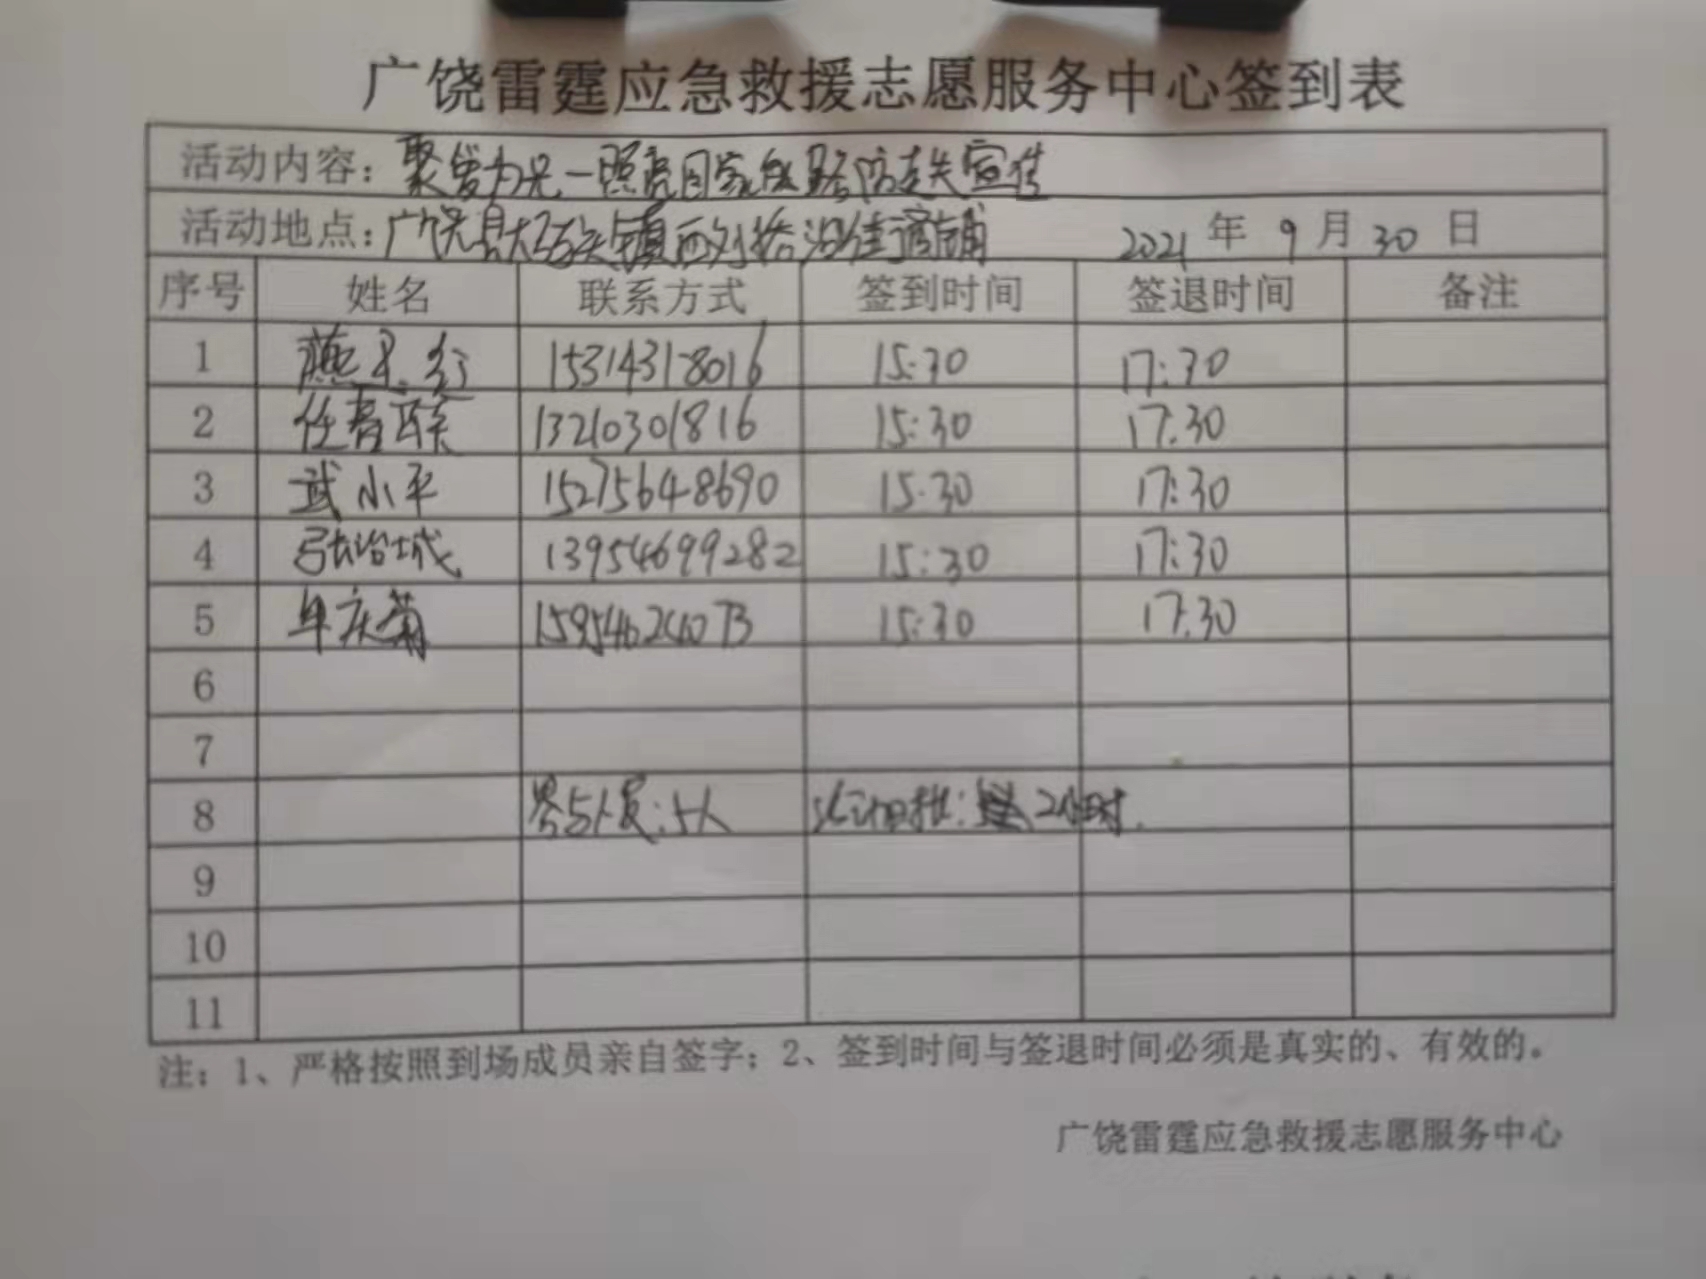 广饶雷霆应急救援志愿服务中心签到表
活动内容：聚爱为光一照亮回家的路防走失宣传
活动地点：广饶县大码头镇西刘桥沿街商铺 2021年9月30日
序号 姓名 联系方式 签到时间 签退时间 备注
1 燕 15314318016 15:30 17:30
2 任春联 13210301816 15:30 17:30
3 武小平 15275648690 15:30 17:30
4 张治城 13954699282 15:30 17:30
5 牟庆菊 15954624073 15:30 17:30
6
7
8 参与人员：5人 2小时
9
10
11
注：1、严格按照到场成员亲自签字；2、签到时间与签退时间必须是真实的、有效的。
广饶雷霆应急救援志愿服务中心